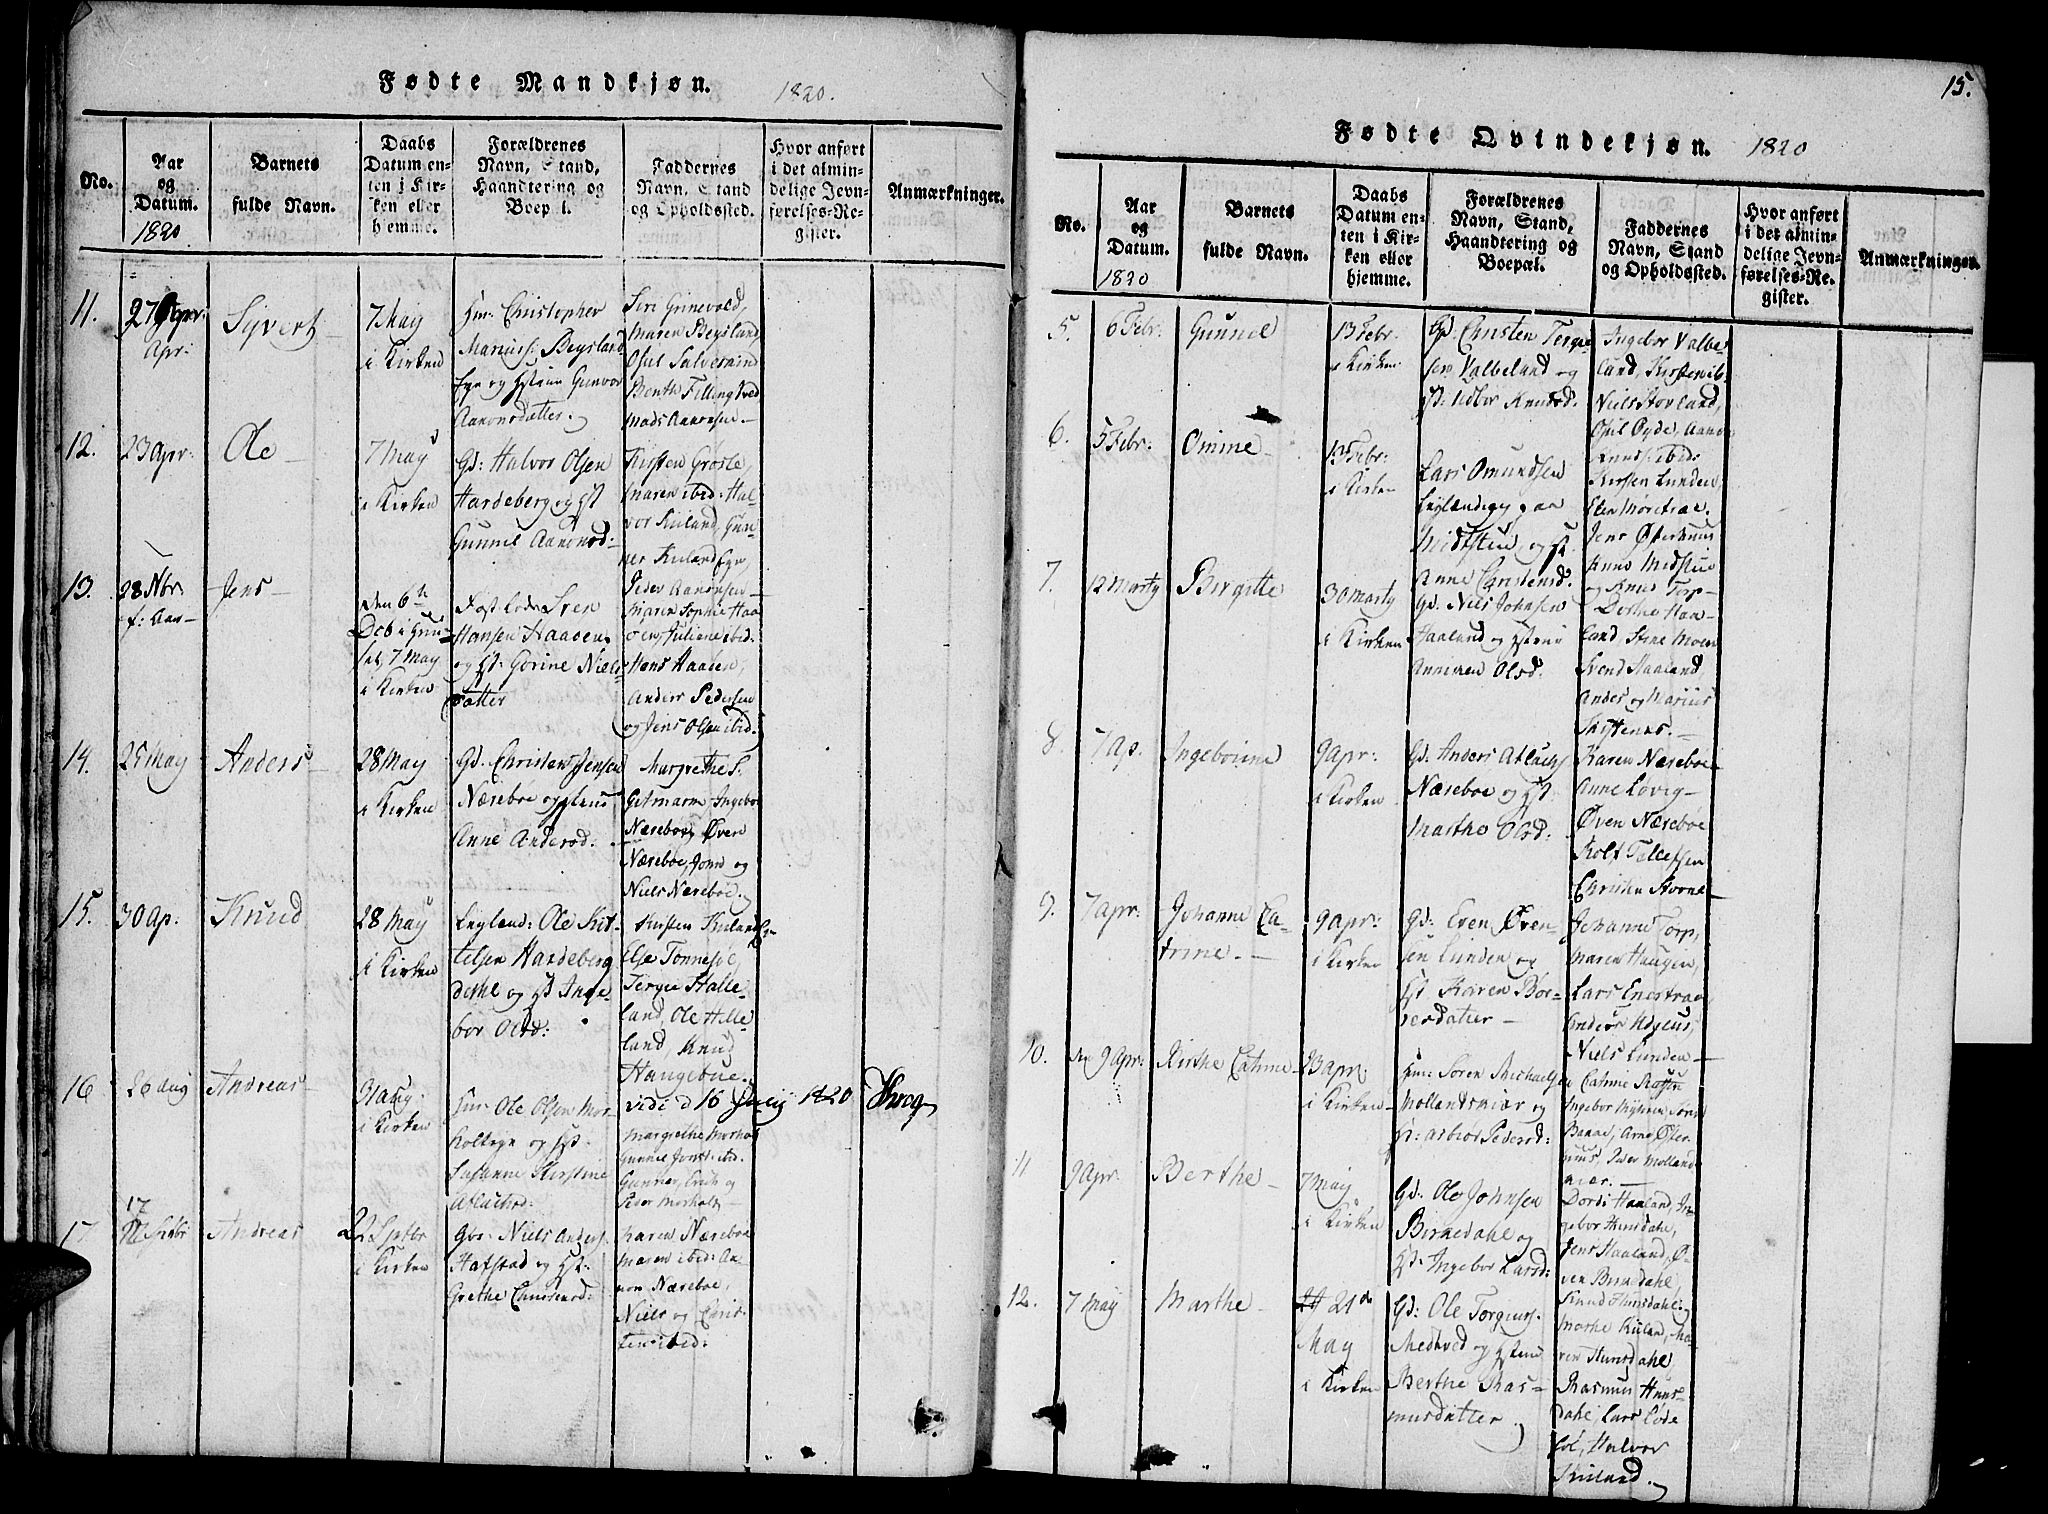 Fødte Mandkjøn. 1820.
No.
Aar
og
Datum.
1820
Barnets
fulde Navn.
Daabs
Datum en-
ten i Kir-
ken eller
hjemme.
Forældrenes
Navn, Stand,
Haandtering og
Boepæl.
Faddernes
Navn, Stand
og Opholdssted.
Hvor anført
i det almin-
delige Jevn-
førelses-Re-
gister.
Anmærkninger.
11.
27 Apr:
Apr:
Syvert
7 May
i Kirken
Hm: Christopher
Mariuss: Beysland
Eye og Hstrue Gunvor
Aanonsdatter.
Siri Grinevold,
Maren Beysland,
Osul Salvesen
Benth Fellingtved
Mads Aanonsen.
12.
23 Apr:
Ole
7 May
i Kirken
Gd: Halvor Olsen
Hardeberg og Hst
Gunnil Aanonsd:
Kirsten Grosle,
Maren ibid: Hal-
vor Kuland, Gun-
ner Kuland Eye,
Peder Aanonsen
13.
28 Nbr
f: Aar
Jens
den 6te
Deb i Huu-
set, 7 May
i Kirken
Fast lods Sven
Hansen Haaven
og Hst: Gorine Niels-
datter
Maren Sophie Haa-
ven, Juliene ibid:
Hans Haaven,
Anders Pedersen
og Jens Olsen ibid:
14.
25 May
Anders
28 May
i Kirken
Gd: Christen Jensen
Næseboe og Hstrue
Anne Andersd:
Margrethe S.
Getmarm Ingebor
Næseboe, Øven
Næseboe, John og
Niels Næseboe.
15.
30 Ap.
Knud
28 May
i Kirken
Leyland: Ole Kit-
telsen Hardeberg
dethe og Hst Inge-
bor Olsd:
Kirsten Kuland Eye
Else Tonnesøl,
Terger Halle-
land, Ole Helle-
land, Knud
Haugebue.
vidi d 16 July 1820 Krog
16
26 Aug
Andreas
31 Aug:
i Kirken
Hm: Ole Olsen Mor-
holteye og Hst.
Susanne Kirstine
Aflastsd:
Margrethe Morholt
Gunnil Jortt: ibid:
Gunner, Erich og
Peder Morholt
17
17
Septbr
Andreas
22 Septbr
i Kirken
Gbr: Niels Anders:
Hafstad og Hst:
Grethe Christensd:
Karen Næseboe
Maren ibid: Aa-
non Næseboe,
Niels og Chris-
ten ibid:
15.
Fødte Qvindekjøn. 1820
No.
Aar
og
Datum.
1820
Barnets
fulde Navn.
Daabs
Datum en-
ten i Kir-
ken eller
hjemme.
Forældrenes
Navn, Stand,
Haandtering og
Boepæl.
Faddernes
Navn, Stand
og Opholdssted.
Hvor anført
i det almin-
delige Jevn-
førelses-Re-
gister.
Anmærkninger.
5.
6 Febr:
Gunnel
13 Febr.
i Kirken
Gd. Christen Terge-
sen Valbeland og
Hst: Udbor Knudsd.
Ingebor Valbe-
land, Kirsten ib:
Niels Stovland,
Osul Øyde, Aanon
Knuds: ibid:
6.
5 Febr:
Omme
13 Febr:
i Kirken
Lars Omundsen
Leylænding paa
Midtstue, og Hst.
Anne Christensd.
Kirsten Lunden,
Elen Moretræe.
Jens Østerhuus
Knud Midstue
og Knud Torp
7.
12 Marty
Birgitte
30 Marty
i Kirken
Gd: Niels Johnsen
Haaland og Hstrue
Annimen Olsd.
Dorthe Haa-
land, Stine Moen
Svend Haaland,
Anders og Marius
Thistenæs.
8.
7 Ap.
Ingeborne
9 Apr:
i Kirken
Gd: Anders Atlachs:
Næseboe og Hst.
Marthe Olsd:
Karen Næseboe
Anne Lovig
Øven Næseboe
Rolf Tellefsen
Christen Hovne
9.
7 Apr:
Johanne Ca-
trine.
9 Apr:
i Kirken
Gd: Even Øven-
sen Lunden og
Hst Karen Bør-
resdatter
Johanne Torp,
Maren Haugen,
Lars Enestræe,
Anders Høgeus,
Niels Lunden
10.
den 9 Apr:
Birthe Catrine
23 Apr:
i Kirken
Hm: Søren Michaelsen
Mollandsmiær og
Hst: Asbior Pedersd:
Catrine Rossen
Ingebor Myhren Søren
Banne, Arne Øster-
huus, Iver Molland-
miær.
11
9 Apr:
Berthe
7 May
i Kirken
Gd: Ole Johnsen
Birkedahl og
Hst: Ingebor Larsd:
Dordi Haaland, In-
gebor Hunsdahl,
Jens Haaland, Ø-
ven Birkedahl,
Knud Hunsdahl.
12.
7 May
Marthe
21de
May
i Kirken
Gd: Ole Torgius:
Medhved og Hstrue
Berthe Ras-
musdatter.
Marthe Kuland, Ma-
ren Hunsdahl
Rasmus Huns-
dahl, Lars Løde-
søl, Halvor
Kuland.